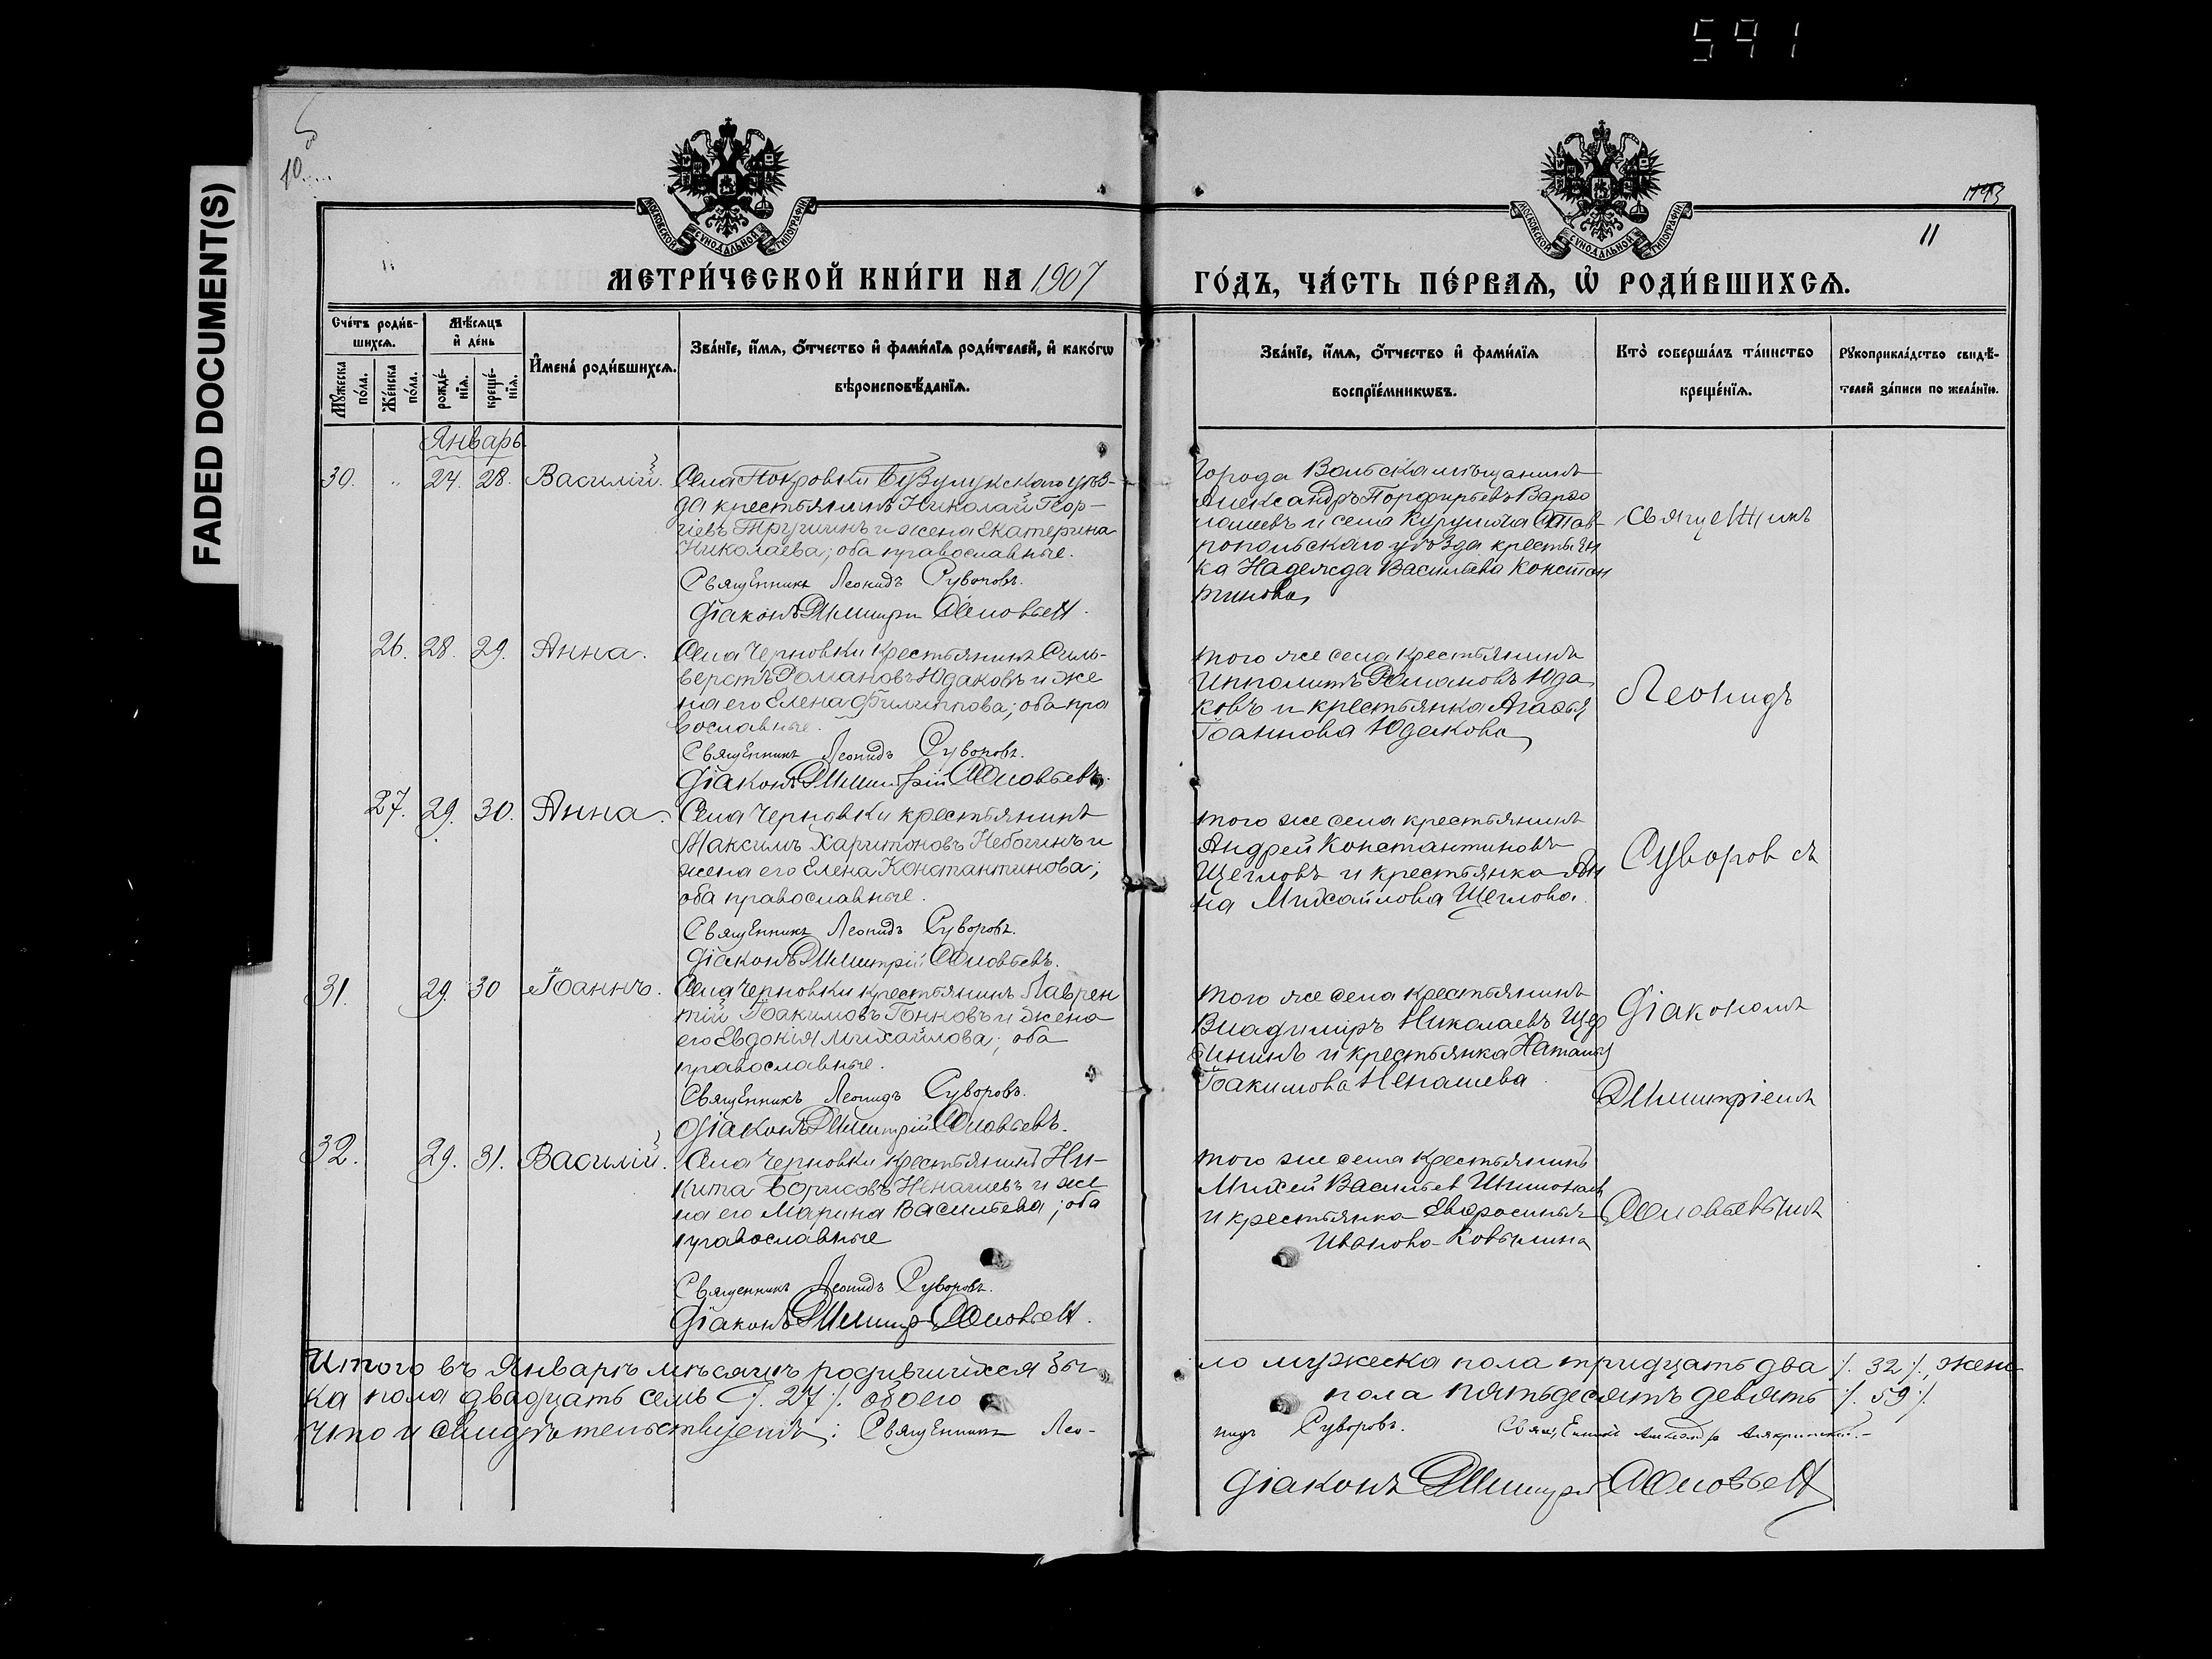 591
FADED DOCUMENT(S)
10
11
МОСКОВСКОЙ СУНОДАЛЬНОЙ ТИПОГРАФІИ
МОСКОВСКОЙ СУНОДАЛЬНОЙ ТИПОГРАФІИ
МЕТРИ́ЧЕСКОЙ КНИ́ГИ НА 1907
ГО́ДЪ, ЧА́СТЬ ПЕ́РВАѦ, Ѡ РОДИ́ВШИХСѦ.
Сче́тъ роди́в-
шихсѧ.
Мѣ́сѧцъ
и де́нь
Мꙋ́жеска
по́ла.
Же́нска
по́ла.
рожде́-
нїѧ.
креще́-
нїѧ.
Имена̀ роди́вшихсѧ.
Зва́нїе, и́мѧ, ѻ҆́тчество и фами́лїѧ роди́телей, и како́гѡ
вѣроисповѣ́данїѧ.
Зва́нїе, и́мѧ, ѻ҆́тчество и фами́лїѧ
воспрїе́мникѡвъ.
Кто̀ соверша́лъ та́инство
креще́нїѧ.
Рꙋкоприкла́дство свидѣ́-
телей за́писи по жела́нїю.
Январь.
30. „ 24. 28. Василій.
Села Покровки Бузулукскаго уѣз-
да крестьянинъ Николай Геор-
гіевъ Тручинъ и жена Екатерина
Николаева; оба православные.
Священникъ Леонидъ Суворовъ.
Діаконъ Димитри Соловьевъ.
Города Вольска мѣщанинъ
Александръ Порфирьевъ Варло
мовъ и села Курумоча Став
ропольскаго уѣзда крестьян
ка Надежда Васильева Констан
тинова
26. 28. 29. Анна.
Села Черновки крестьянинъ Силь-
верстъ Романовъ Юдаковъ и же
на его Елена Филиппова; оба пра
вославные.
Священникъ Леонидъ Суворовъ.
Діаконъ Димитрій Соловьевъ.
того же села крестьянинъ
Ипполитъ Романовъ Юда
ковъ и крестьянка Агафья
Іоаннова Юдакова
27. 29. 30. Анна.
Села Черновки крестьянинъ
Максимъ Харитоновъ Небогинъ и
жена его Елена Константинова;
оба православные.
Священникъ Леонидъ Суворовъ.
Діаконъ Димитрій Соловьевъ.
того же села крестьянинъ
Андрей Константиновъ
Щегловъ и крестьянка Ан
на Михайлова Щеглова.
31. 29. 30 Іоаннъ.
Села Черновки крестьянинъ Лаврен
тій Іоакимовъ и жена
его Евдокія Михайлова; оба
православные.
Священникъ Леонидъ Суворовъ.
Діаконъ Димитрій Соловьевъ.
того же села крестьянинъ
Владиміръ Николаевъ Щер
бининъ и крестьянка Наталья
Іоакимова Ненашева.
32. 29. 31. Василій.
Села Черновки крестьянинъ Ни-
кита Борисовъ Ненашевъ и же
на его Марина Васильева; оба
православные
Священникъ Леонидъ Суворовъ.
Діаконъ Димитр Соловьевъ.
того же села крестьянинъ
Михей Васильев
и крестьянка Евфросинья
Иванова Ковылина
Священникъ
Леонидъ
Суворовъ съ
Діакономъ
Димитріемъ
Соловьевымъ
Итого въ Январѣ мѣсяцѣ родившихся бы-
ло мужеска пола тридцать два /. 32 /., женс
ка пола двадцать семь /. 27 /. обоего
пола пятьдесятъ девять /. 59 /.
Что и свидѣтельствуемъ: Священникъ Лео-
нидъ Суворовъ.
Діаконъ Димитрій Соловьевъ